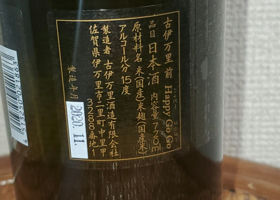 古伊万里 前 Happy Go Go
品目 日本酒 内容量 720ml
原材料名 米(国産)米麹(国産米)
アルコール分 15度
製造者 古伊万里酒造有限会社
佐賀県伊万里市二里町中里甲
3288番地1
製造年月
2020.11